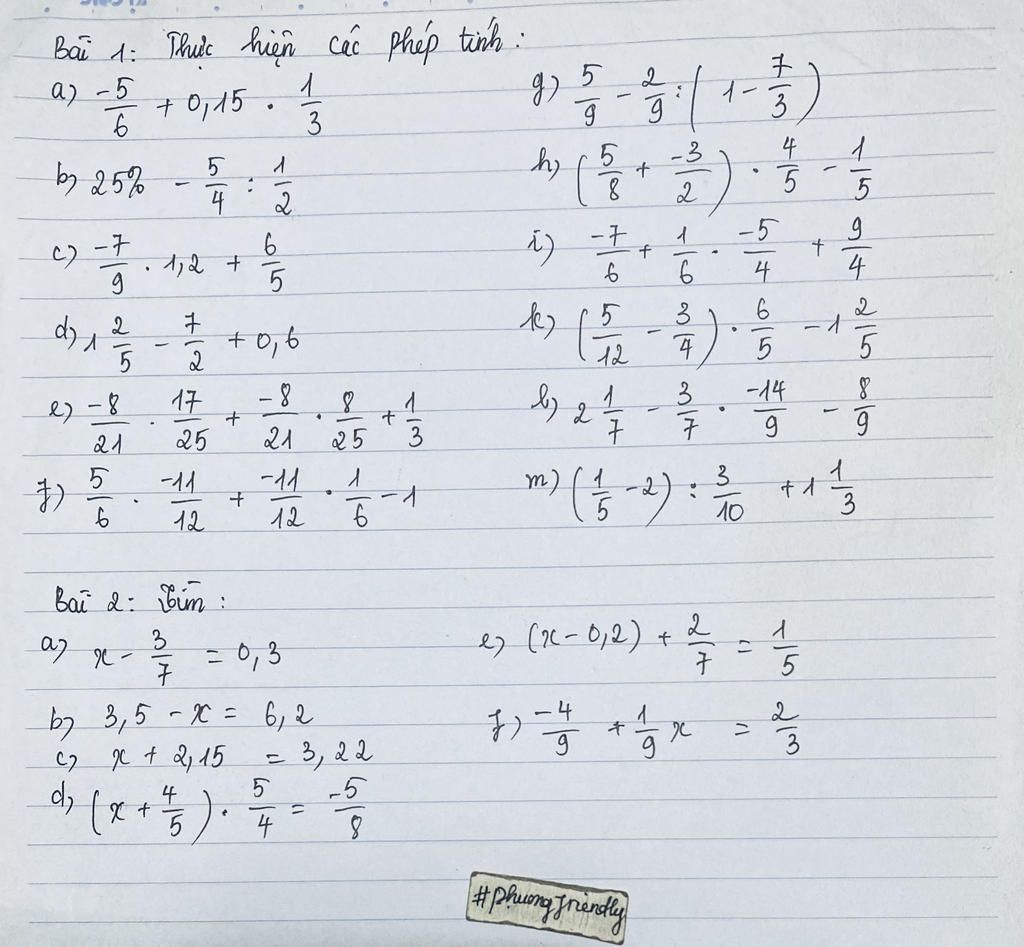 Bài 1: Thực hiện các phép tính:
a) -5/6 + 0,15 . 1/3
b) 25% - 5/4 : 1/2
c) -7/9 . 1,2 + 6/5
d) 1 2/5 - 7/2 + 0,6
e) -8/21 . 17/25 + -8/21 . 8/25 + 1/3
f) 5/6 . -11/12 + -11/12 . 1/6 - 1
g) 5/9 - 2/9 : (1 - 7/3)
h) (5/8 + -3/2) . 4/5 - 1/5
i) -7/6 + 1/6 . -5/4 + 9/4
k) (5/12 - 3/4) . 6/5 - 1 2/5
l) 2 1/7 - 3/7 . -14/9 - 8/9
m) (1/5 - 2) : 3/10 + 1 1/3
Bài 2: Tìm:
a) x - 3/7 = 0,3
b) 3,5 - x = 6,2
c) x + 2,15 = 3,22
d) (x + 4/5) . 5/4 = -5/8
e) (x - 0,2) + 2/7 = 1/5
f) -4/9 + 1/9 x = 2/3
#phuongfriendly